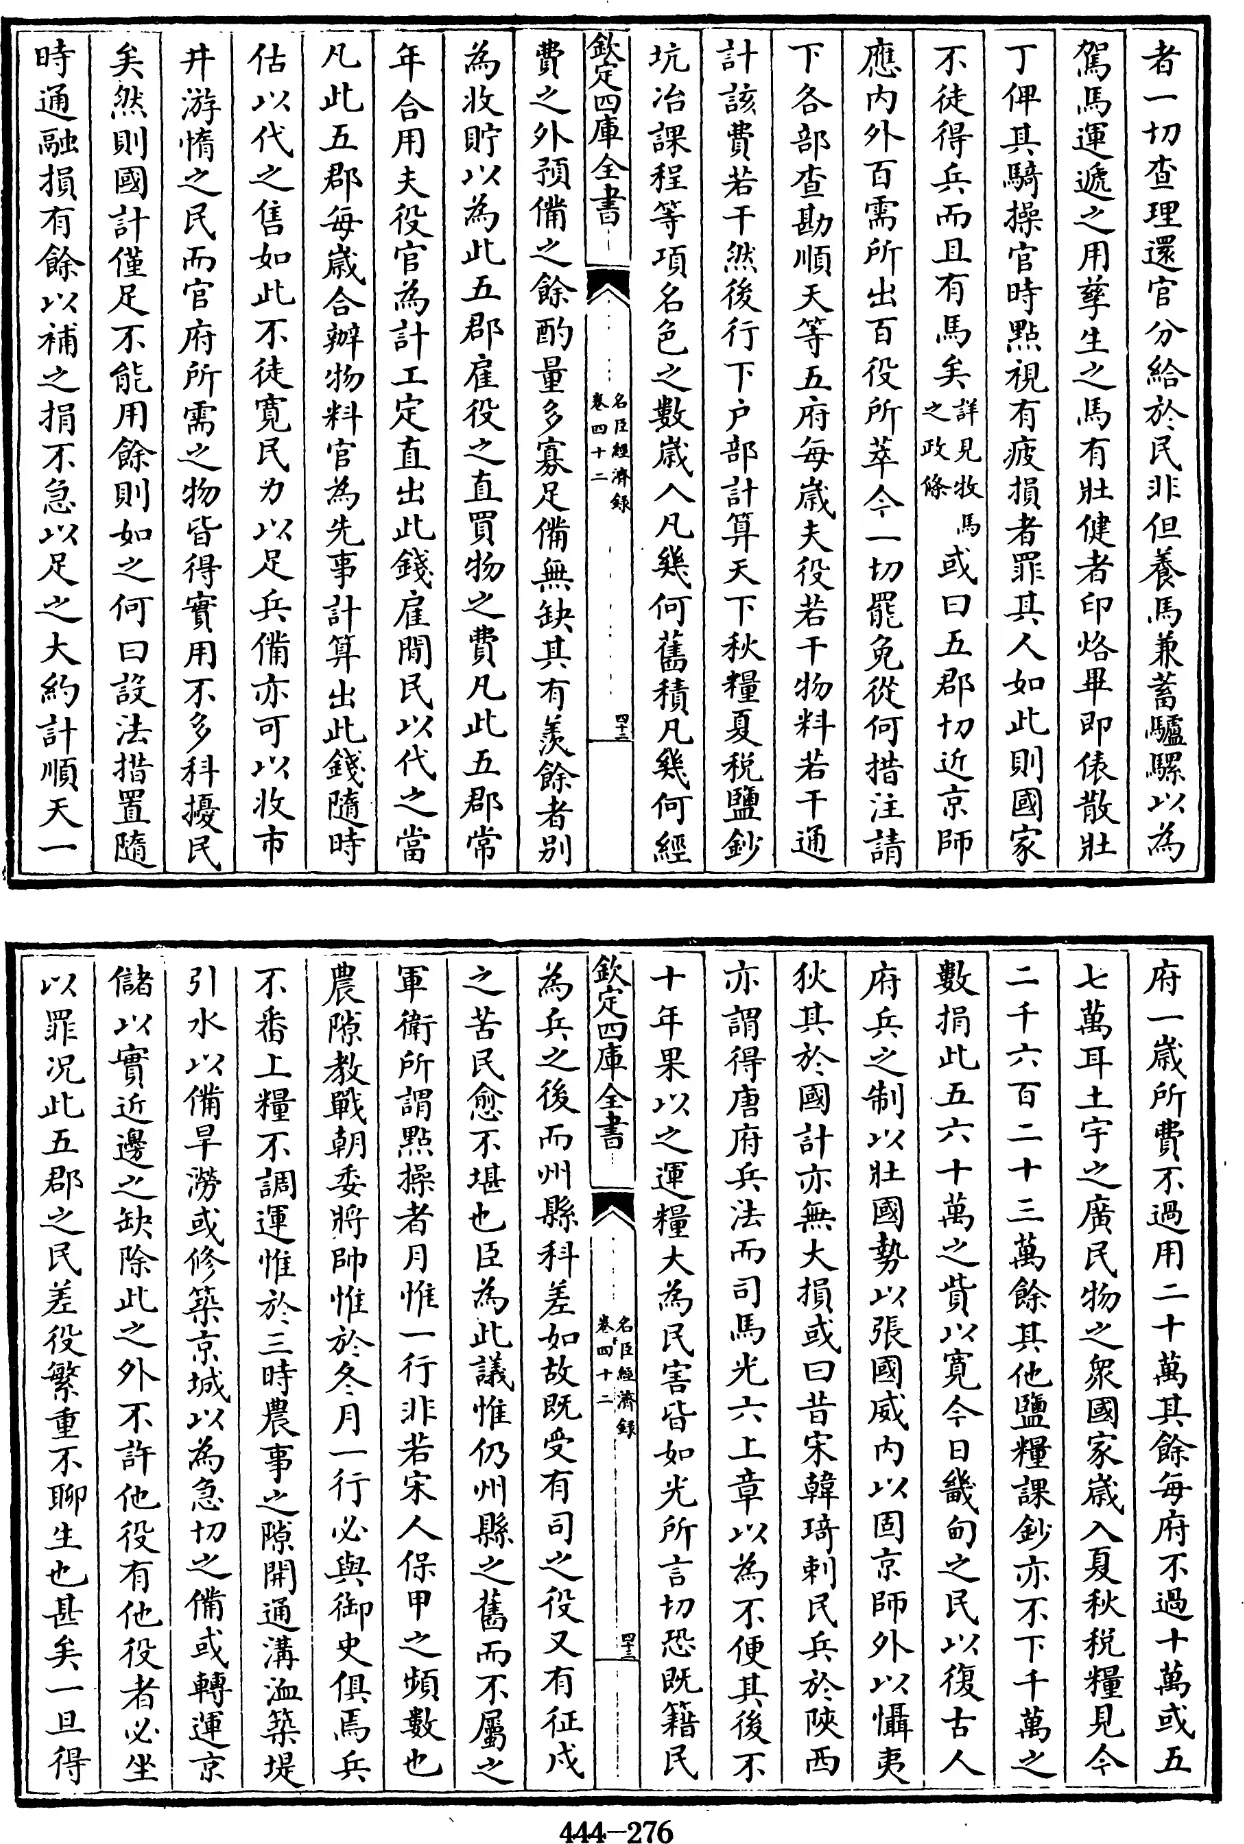 者一切查理還官分給於民非但養馬兼蓄驢騾以為
駕馬運遞之用孳生之馬有壯健者印烙畢即俵散壯
丁俾其騎操官時點視有疲損者罪其人如此則國家
不徒得兵而且有馬矣詳見牧馬之政條或曰五郡切近京師
應内外百需所出百役所萃今一切罷免從何措注請
下各部查勘順天等五府每歲夫役若干物料若干通
計該費若干然後行下户部計算天下秋糧夏税鹽鈔
坑冶課程等項名色之數歲入凡幾何舊積凡幾何經
欽定四庫全書
名臣經濟録
卷四十二
四十三
費之外預備之餘酌量多寡足備無缺其有羨餘者别
為收貯以為此五郡雇役之直買物之費凡此五郡常
年合用夫役官為計工定直出此錢雇閒民以代之當
凡此五郡每歲合辦物料官為先事計算出此錢隨時
估以代之售如此不徒寛民力以足兵備亦可以收市
井游惰之民而官府所需之物皆得實用不多科擾民
矣然則國計僅足不能用餘則如之何曰設法措置隨
時通融損有餘以補之捐不急以足之大約計順天一
府一歲所費不過用二十萬其餘每府不過十萬或五
七萬耳土宇之廣民物之衆國家歲入夏秋税糧見今
二千六百二十三萬餘其他鹽糧課鈔亦不下千萬之
數捐此五六十萬之貲以寛今日畿甸之民以復古人
府兵之制以壯國勢以張國威内以固京師外以懾夷
狄其於國計亦無大損或曰昔宋韓琦刺民兵於陜西
亦謂得唐府兵法而司馬光六上章以為不便其後不
十年果以之運糧大為民害皆如光所言切恐既籍民
欽定四庫全書
名臣經濟録
卷四十二
四十三
為兵之後而州縣科差如故既受有司之役又有征戍
之苦民愈不堪也臣為此議惟仍州縣之舊而不屬之
軍衛所謂點操者月惟一行非若宋人保甲之頻數也
農隙教戰朝委將帥惟於冬月一行必與御史俱焉兵
不番上糧不調運惟於三時農事之隙開通溝洫築堤
引水以備旱澇或修築京城以為急切之備或轉運京
儲以實近邊之缺除此之外不許他役有他役者必坐
以罪况此五郡之民差役繁重不聊生也甚矣一旦得
444-276